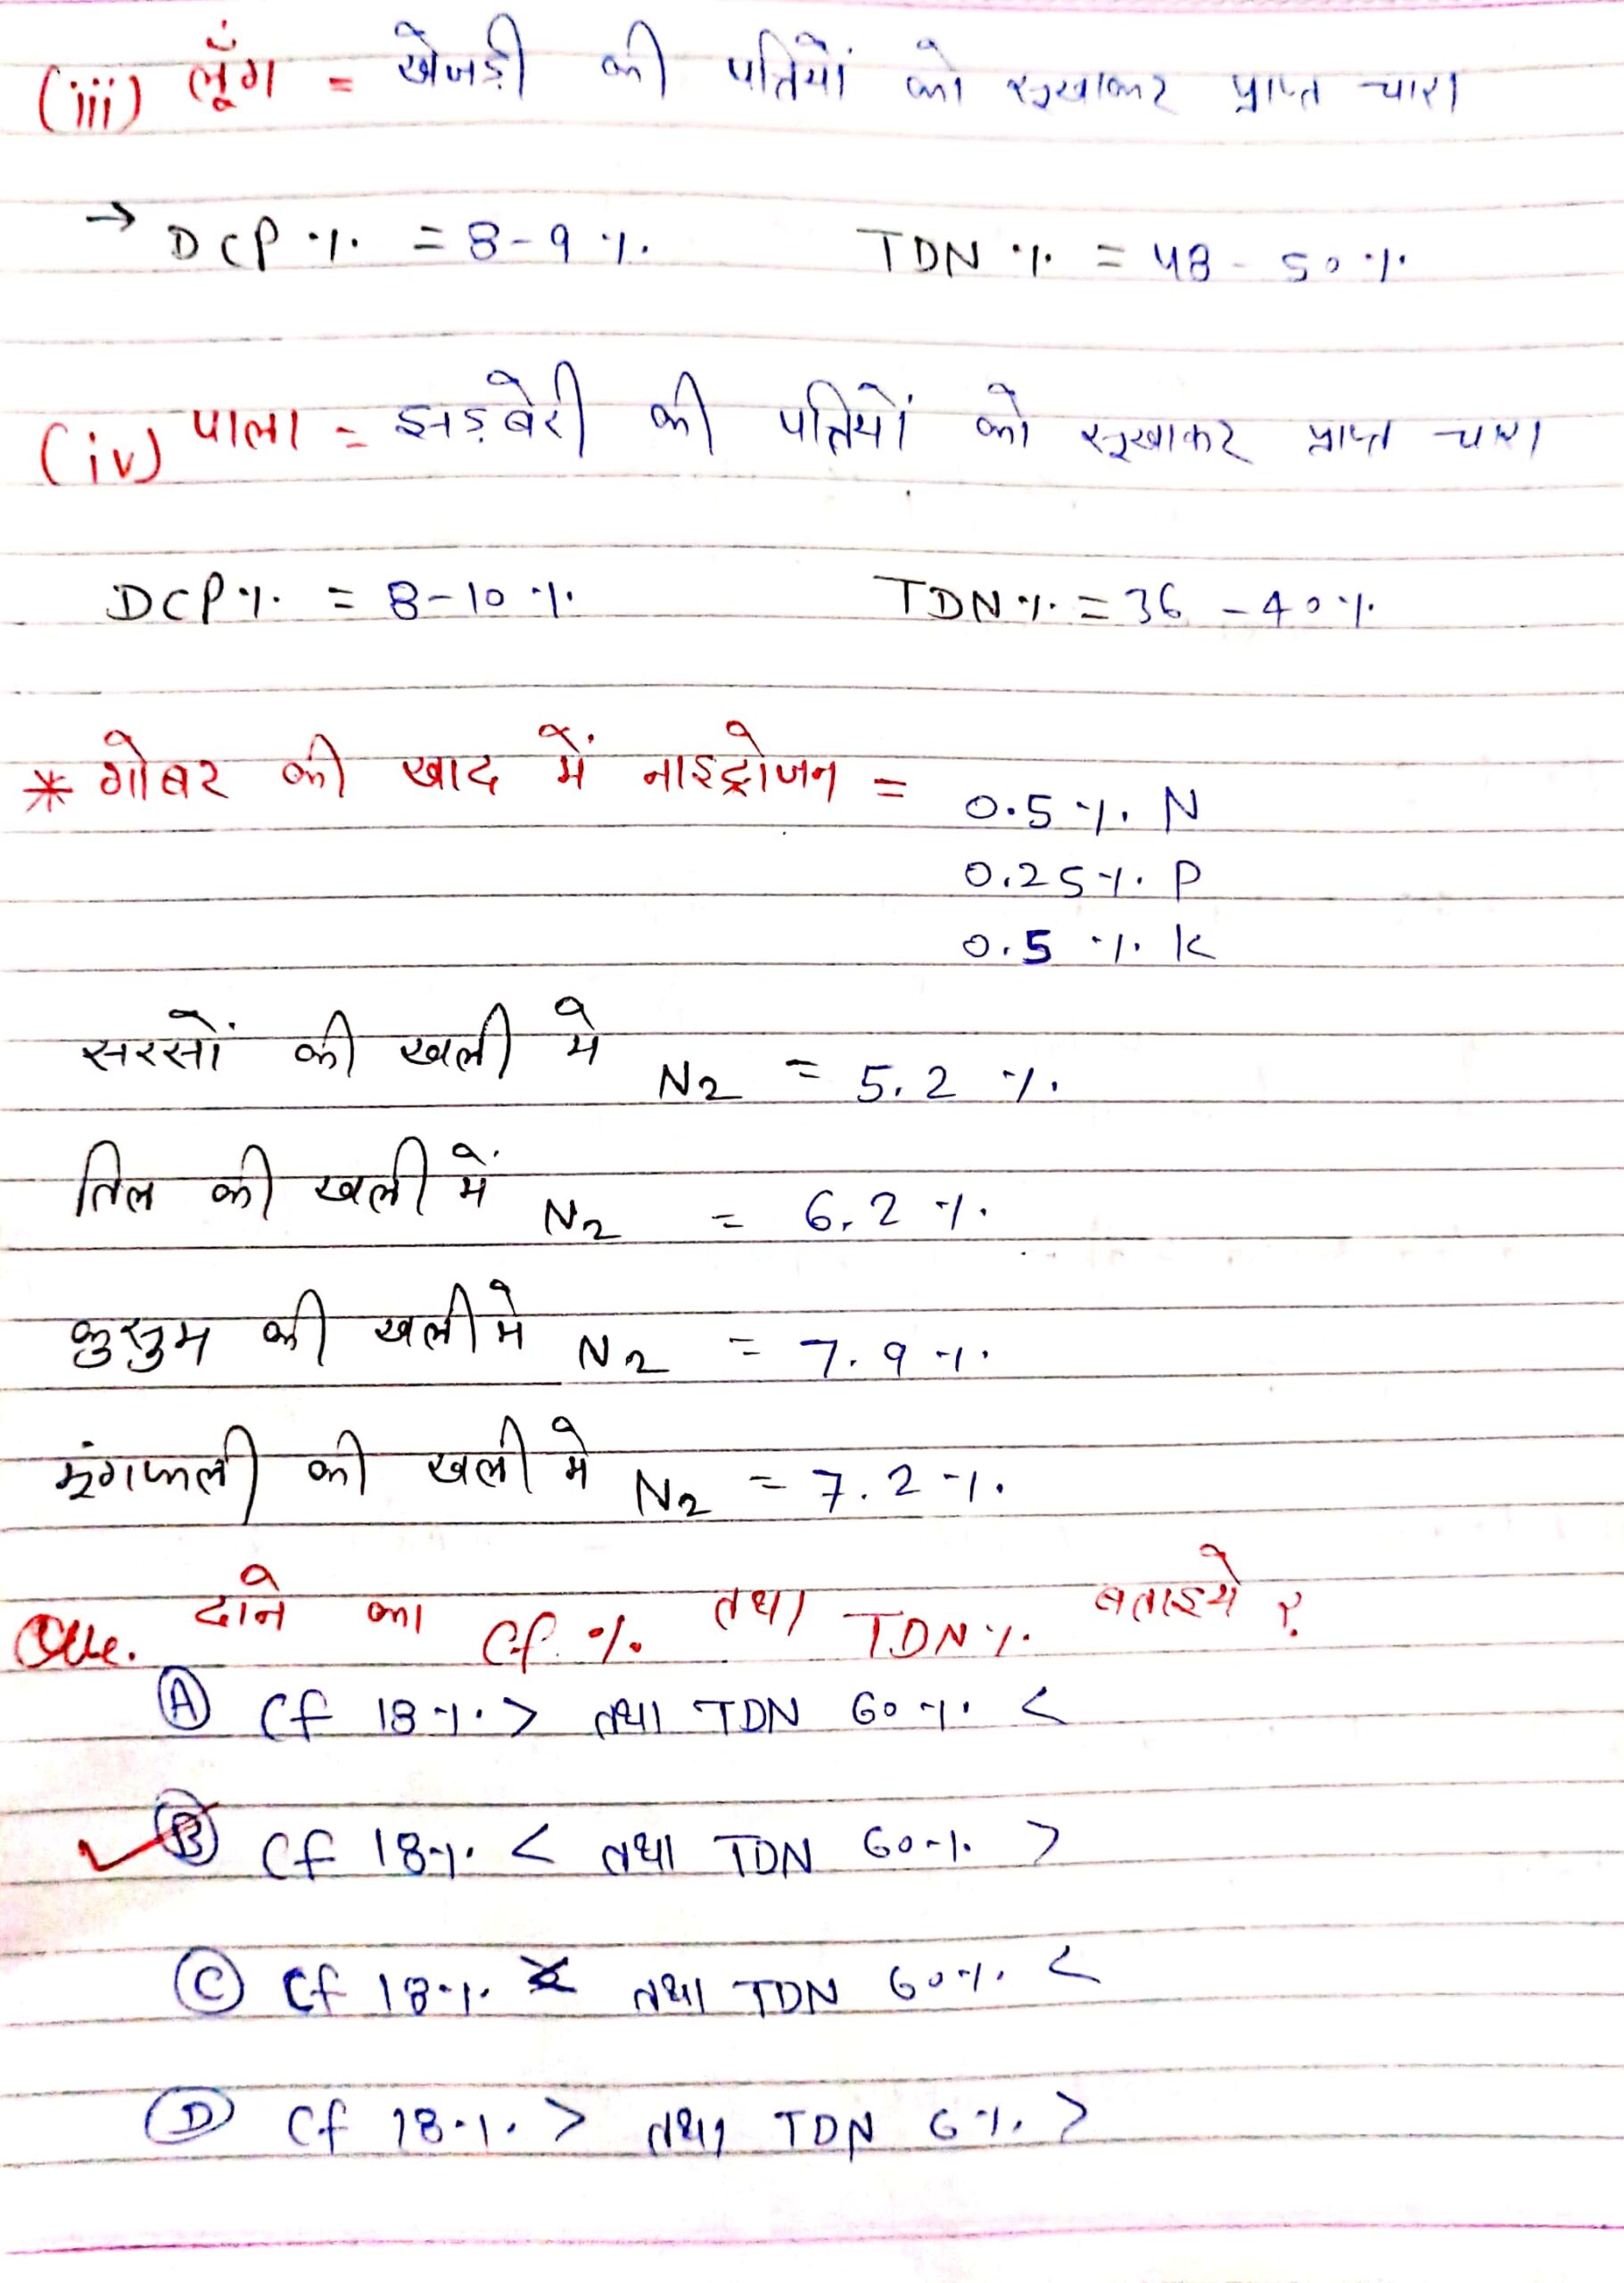 (iii) लूँग = खेजड़ी की पत्तियों को सूखाकर प्राप्त चारा
→ DCP % = 8-9 %. TDN % = 48 - 50 %
(iv) पाला = झड़बेरी की पत्तियों को सूखाकर प्राप्त चारा
DCP % = 8-10 % TDN % = 36 - 40 %
* गोबर की खाद में नाइट्रोजन = 0.5 % N
0.25 % P
0.5 % K
सरसों की खली मे N2 = 5.2 %
तिल की खली में N2 = 6.2 %
कुसुम की खली मे N2 = 7.9 %
मूंगफली की खली मे N2 = 7.2 %
Que. दाने का Cf % तथा TDN % बताइये ?
(A) Cf 18 % > तथा TDN 60 % <
(B) Cf 18 % < तथा TDN 60 % >
(C) Cf 18 % < तथा TDN 60 % <
(D) Cf 18 % > तथा TDN 6 % >